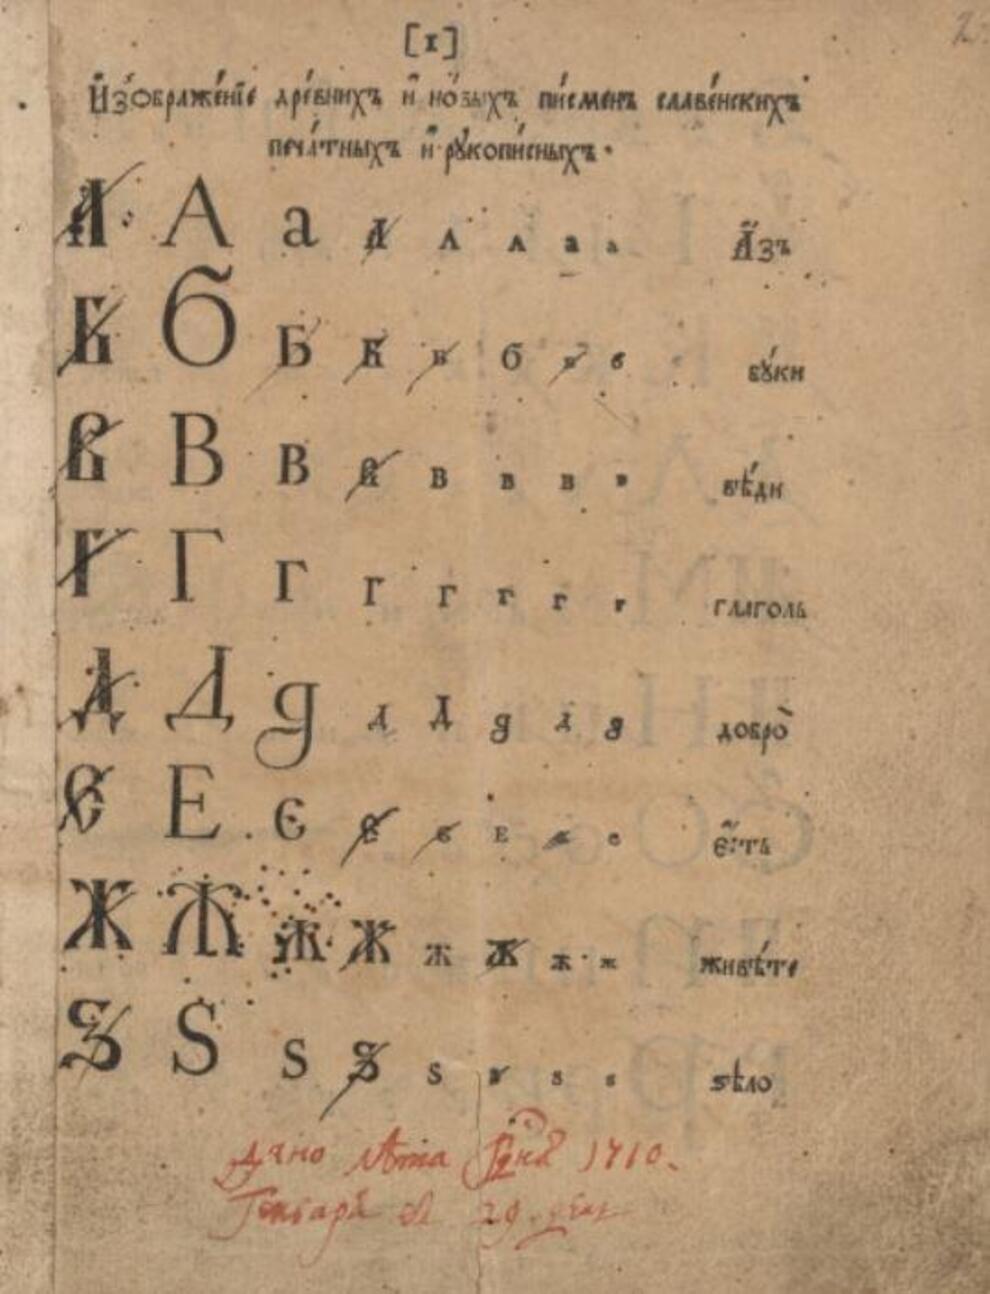 [1]
И҆зѡбраже́нїе дре́внихъ и҆ но́выхъ пи́сменъ славе́нскихъ
печа́тныхъ и҆ рꙋкопи́сныхъ.
А А а А А А а а А҆́зъ
Б Б Б Б Б б Б Б бꙋ́ки
В В В В В В В В вѣ́ди
Г Г Г Г Г Г Г Г глаголь
Д Д д Д Д д Д д добро̀
Є Е є Є Є Е Є є є҆́сть
Ж Ж Ж Ж Ж Ж Ж Ж живѣ́те
Ѕ Ѕ ѕ Ѕ ѕ ѕ ѕ ѕ ѕѣло̀
Дано лѣта Гднѧ 1710.
Генваря въ 29. день